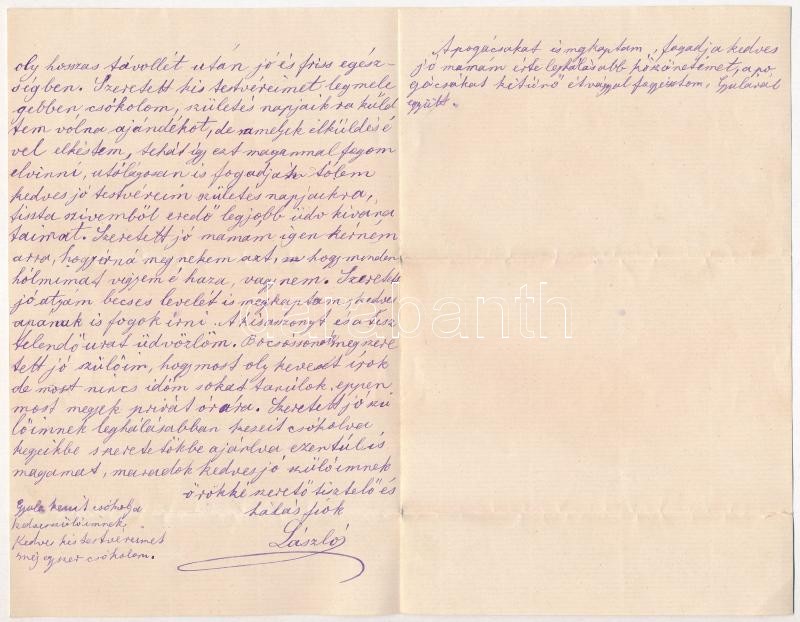 oly hosszas távollét után jó és friss egész-
ségben. Szeretett kis testvéreimet, legmele
gebben csókolom, születés napjaikra küld
tem volna ajándékot, de amelyek elküldésé
vel elkéstem, tehát így ezt magammal fogom
elvinni, utólagosan is fogadják tőlem
kedves jó testvéreim születés napjaikra,
tiszta szívemből eredő legjobb üdv kívána
taimat. Szeretett jó mamám igen kérném
arra, hogy írná meg nekem azt, hogy minden
holmimat vigyem é haza, vagy nem. Szeretett
jó atyám becses levelét is megkaptam, kedves
apának is fogok írni. A kisaszonyt és a tisz
telendő urat üdvözlöm. Bocsássanak meg szere
tett jó szülőim, hogy most oly keveset írok
de most nincs időm sokat tanúlok, eppen
most megyek privát órára. Szeretett jó szü
lőimnek leghálásabban kezeit csókolva
kegyeikbe s szeretetökbe ajárlva ezentúl is
magamat, maradok kedves jó szülőimnek
örökké szerető tisztelő és
hálás fiók
László
Gyula kezeit csókolja
kedves szülőimnek,
Kedves kis testvéreimet
még egyszer csókolom.
A pogácsákat is megkaptam, fogadja kedves
jó mamám érte leghálásabb köszönetemet, a po
gácsákat kitünő étvággyal fogyasztom, Gyulával
együtt.
darabanth